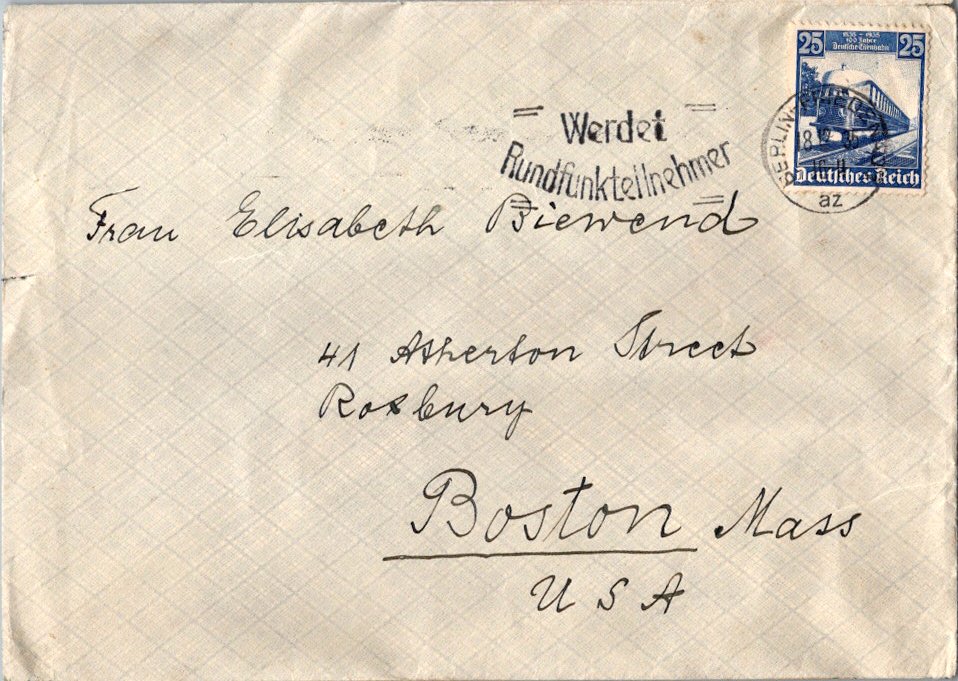 25 1835 - 1935 25
100 Jahre
Deutsche Eisenbahn
Werdet
Rundfunkteilnehmer
BERLIN-FRIEDENAU
az
Deutsches Reich
Frau Elisabeth Biewend
41 Atherton Street
Roxbury
Boston Mass
U S A